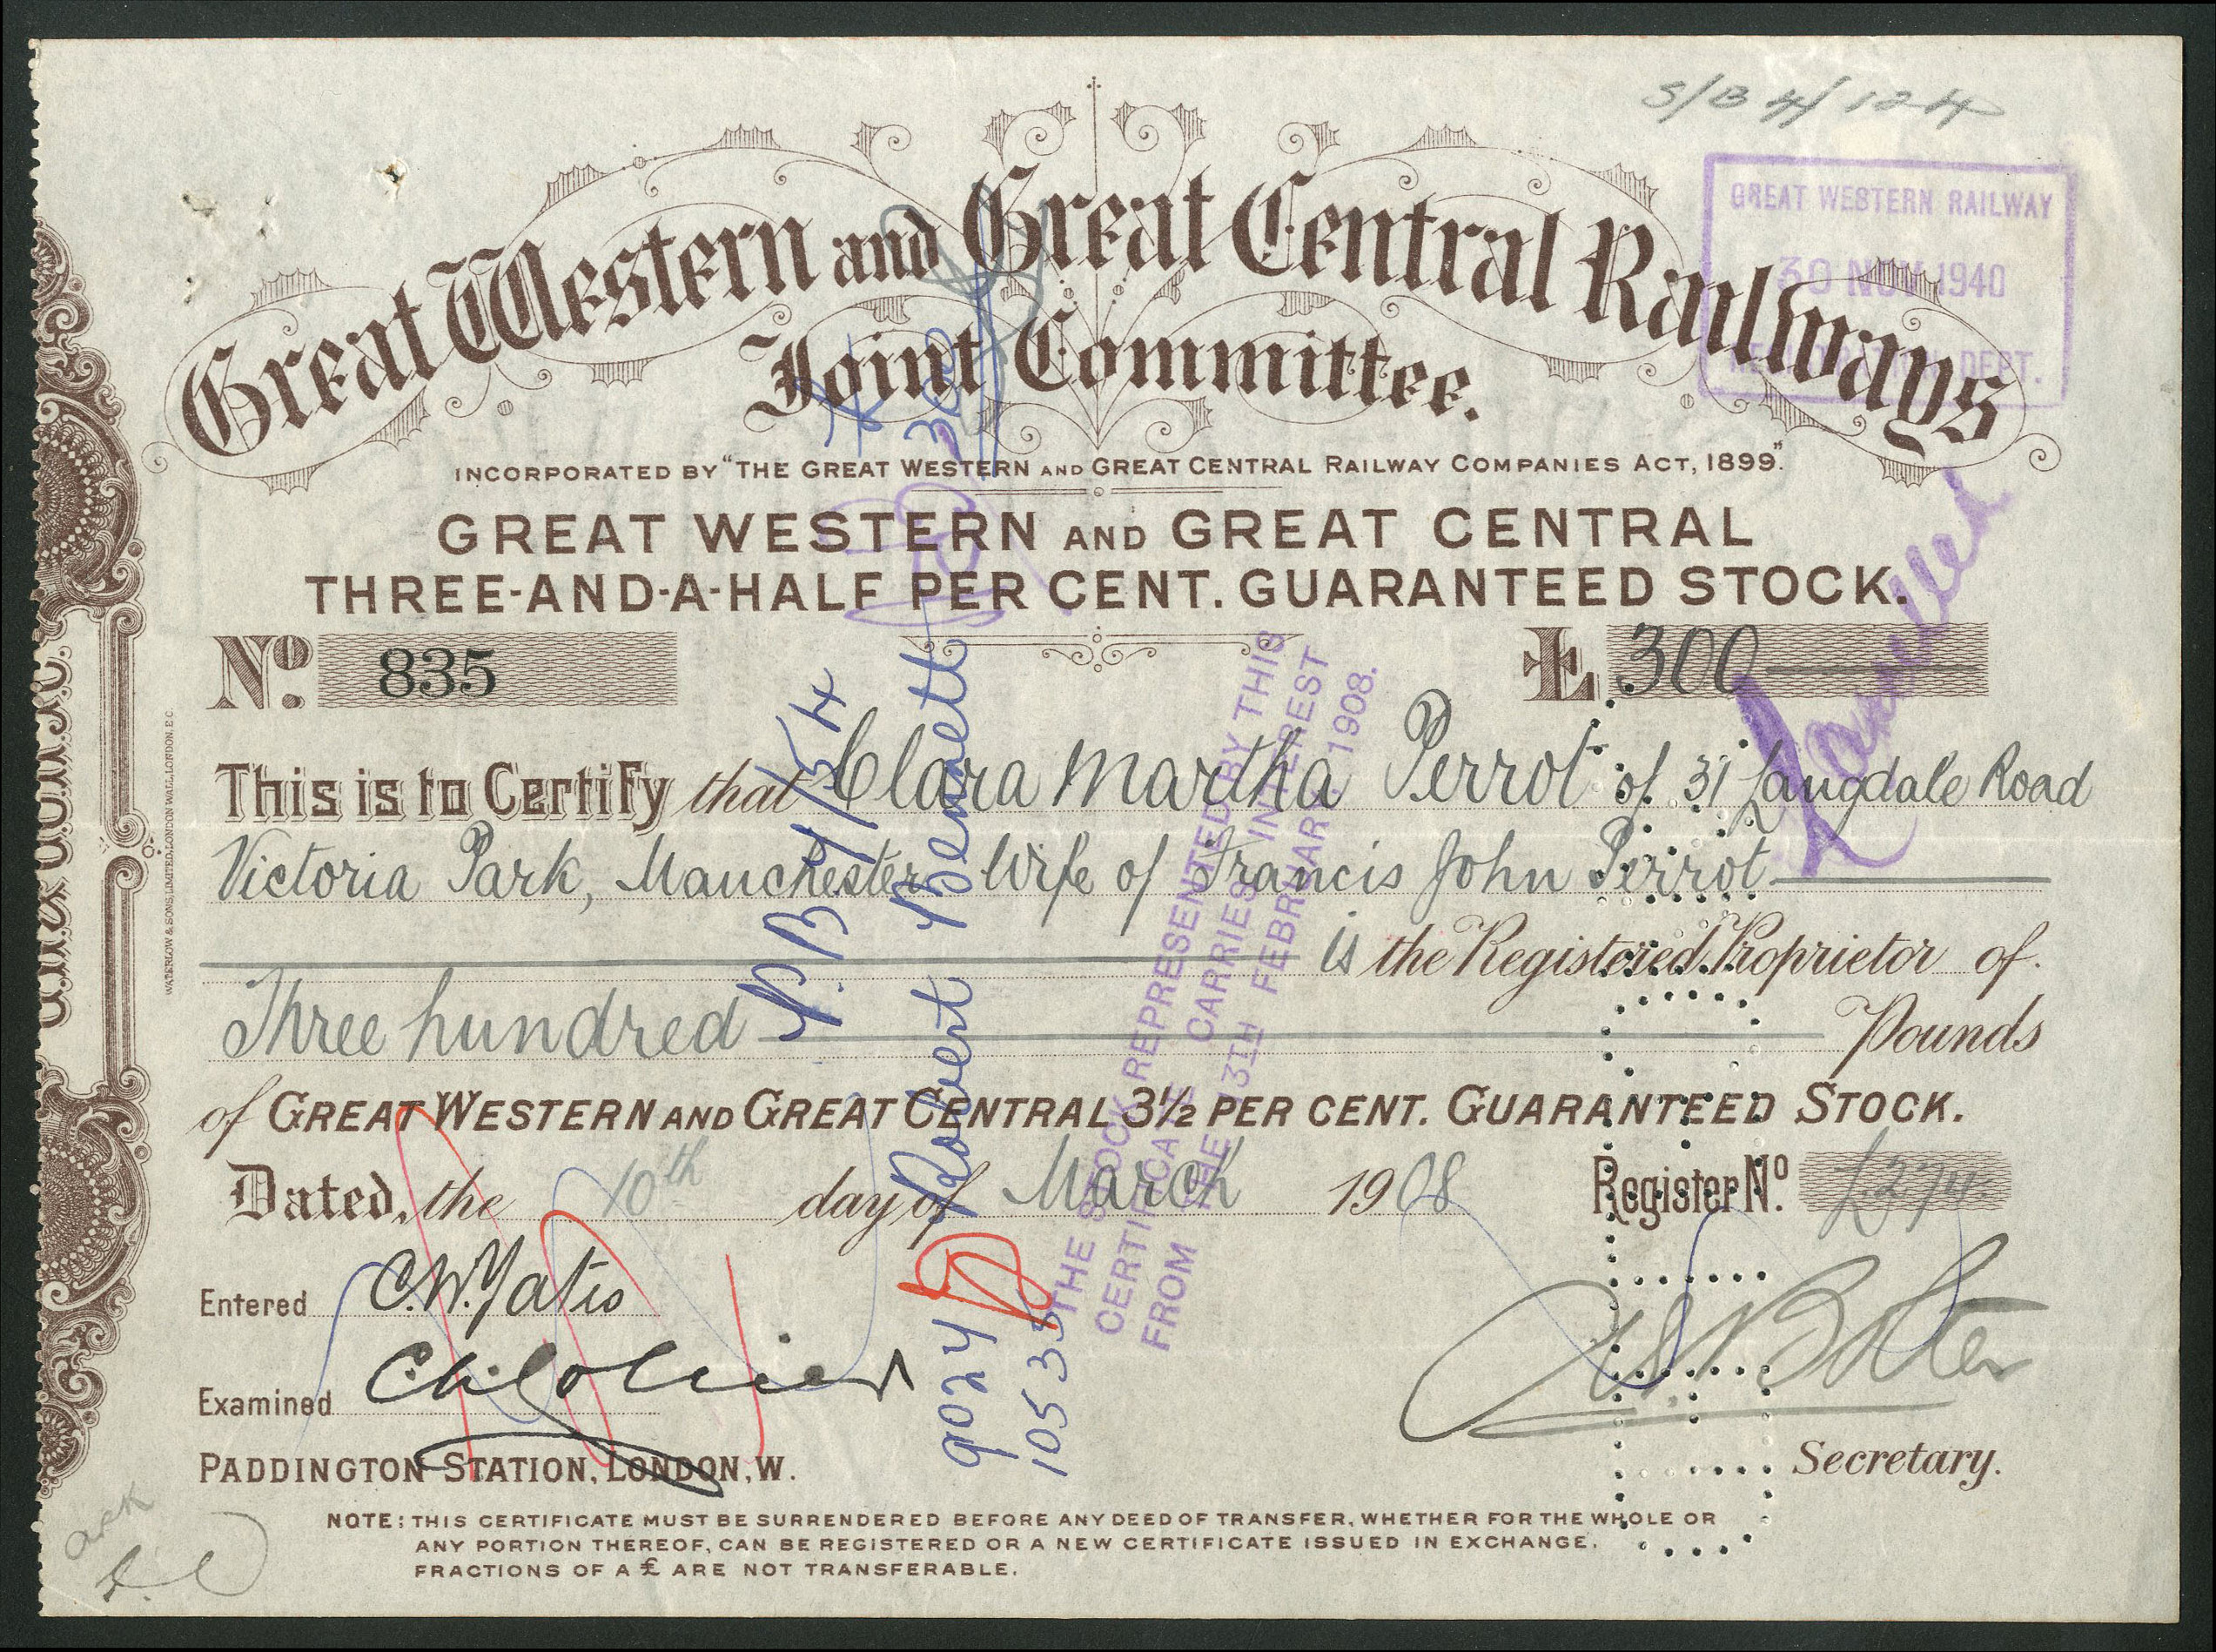 S/B 4/124
GREAT WESTERN RAILWAY
30 NOV 1940
DEPT.
Great Western and Great Central Railways
Joint Committee.
INCORPORATED BY "THE GREAT WESTERN AND GREAT CENTRAL RAILWAY COMPANIES ACT, 1899."
GREAT WESTERN AND GREAT CENTRAL
THREE-AND-A-HALF PER CENT. GUARANTEED STOCK.
No. 835
£ 300
Cancelled
This is to Certify that Clara Martha Perrot of 31 Langdale Road
Victoria Park, Manchester Wife of Francis John Perrot
is the Registered Proprietor of
Three hundred Pounds
of GREAT WESTERN AND GREAT CENTRAL 3½ PER CENT. GUARANTEED STOCK.
Dated, the 10th day of March 1908
Register No.
Entered C.W. Yates
Examined
PADDINGTON STATION, LONDON, W.
Secretary.
NOTE: THIS CERTIFICATE MUST BE SURRENDERED BEFORE ANY DEED OF TRANSFER, WHETHER FOR THE WHOLE OR
ANY PORTION THEREOF, CAN BE REGISTERED OR A NEW CERTIFICATE ISSUED IN EXCHANGE.
FRACTIONS OF A £ ARE NOT TRANSFERABLE.
WATERLOW & SONS, LIMITED, LONDON WALL, LONDON, E.C
Robert Bennett
9024
10533
THE STOCK REPRESENTED BY THIS
CERTIFICATE CARRIES INTEREST
FROM THE 13TH FEBRUARY, 1908.